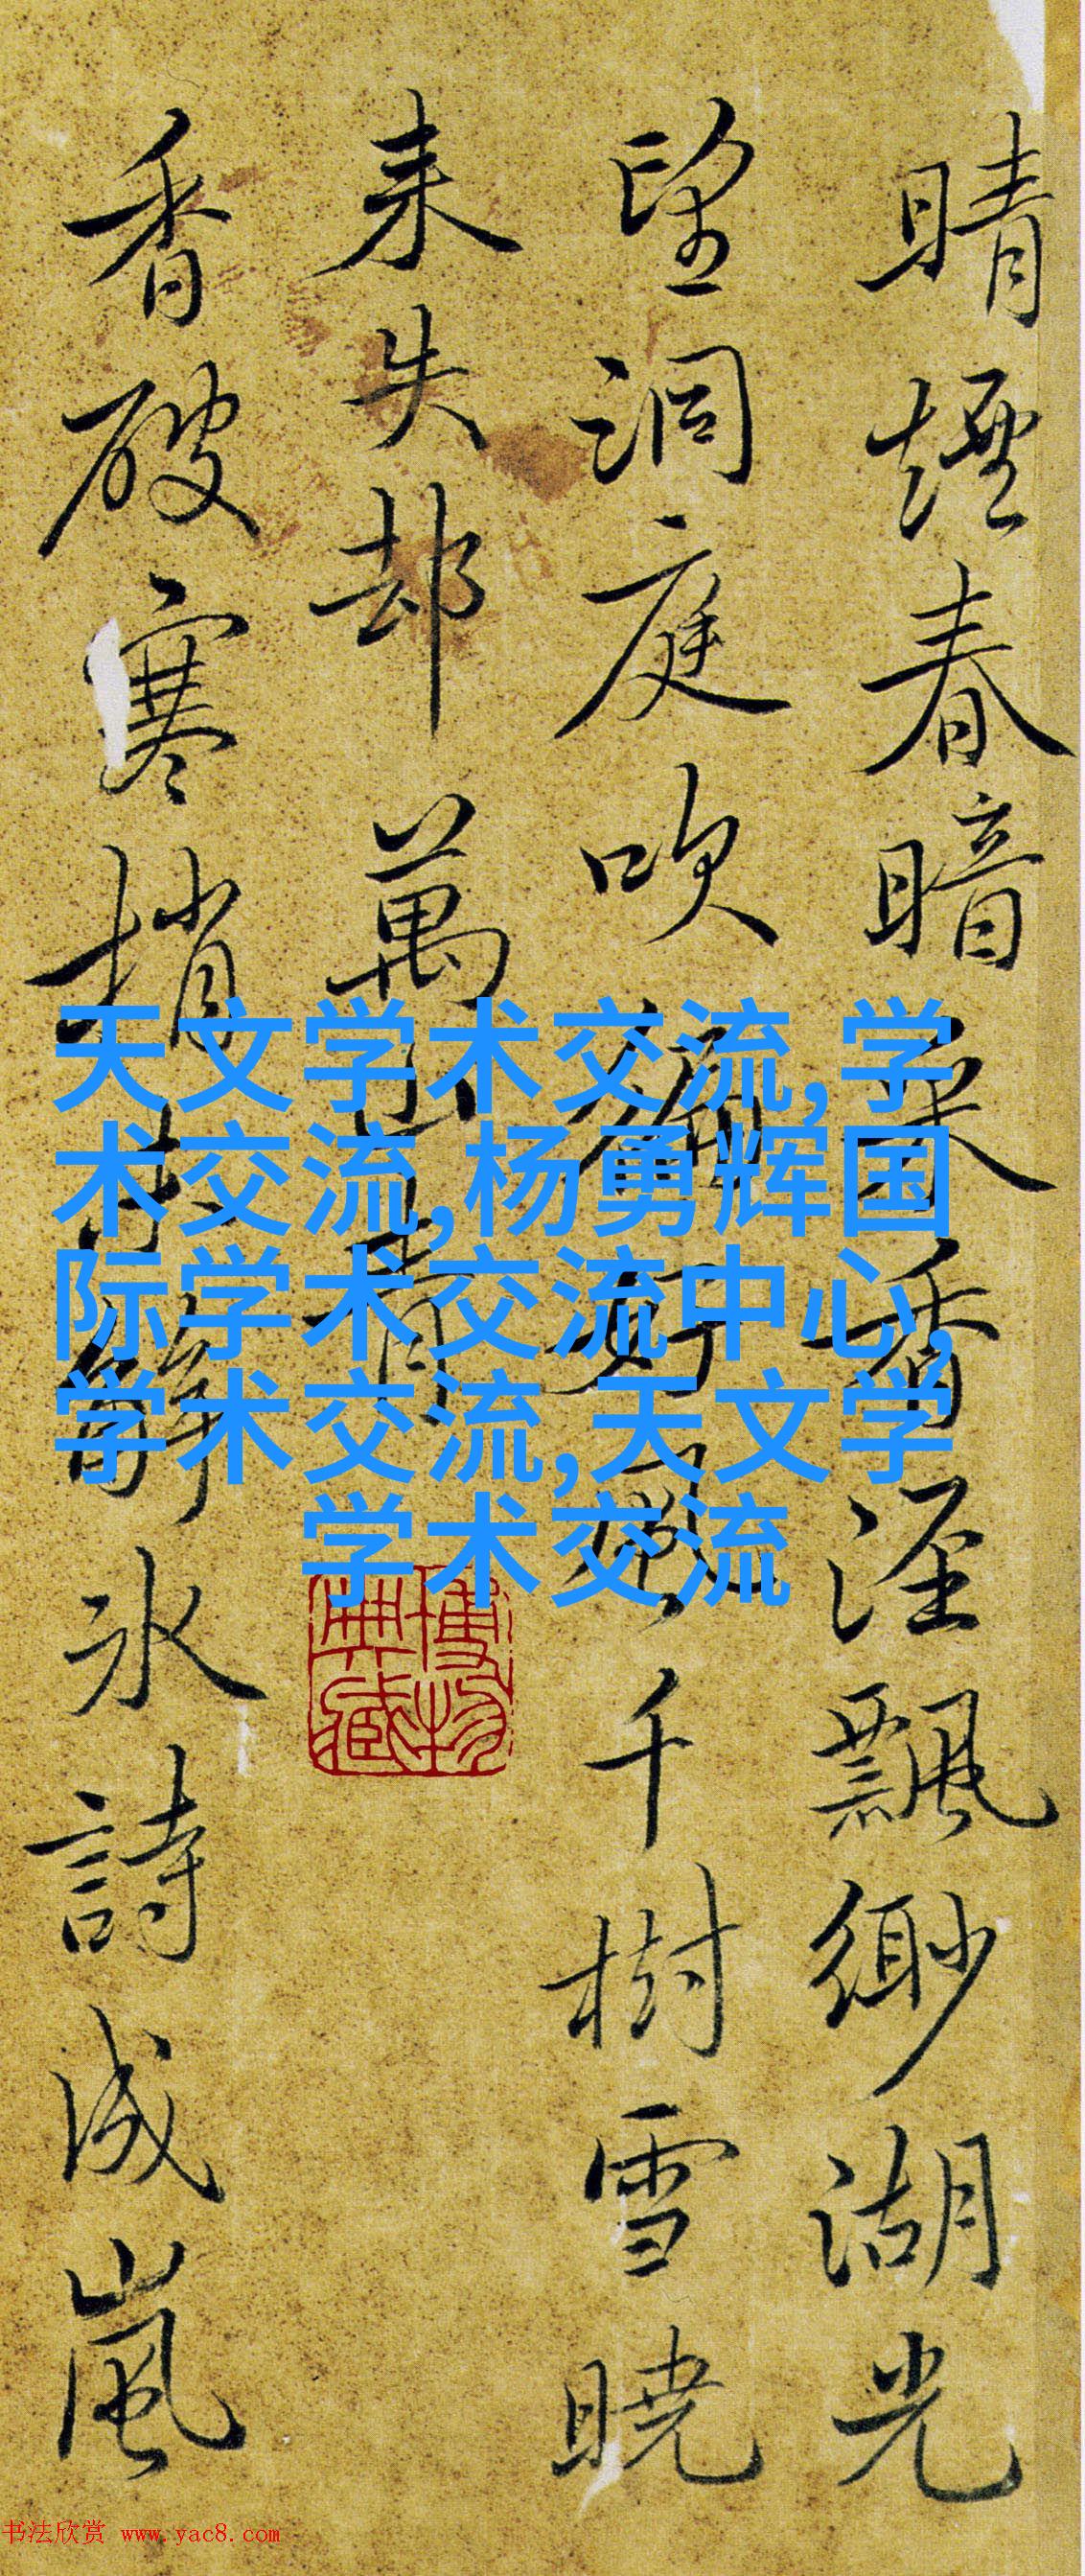 晴煙春暗柔香溼飄緲湖光
望洞庭吹 好風千樹雪曉
来失却萬山青
香破寒梢 解冰詩成嵐
博物
典藏
天文学术交流,学
术交流,杨勇辉国
际学术交流中心,
学术交流,天文学
学术交流
书法欣赏 www.yac8.com